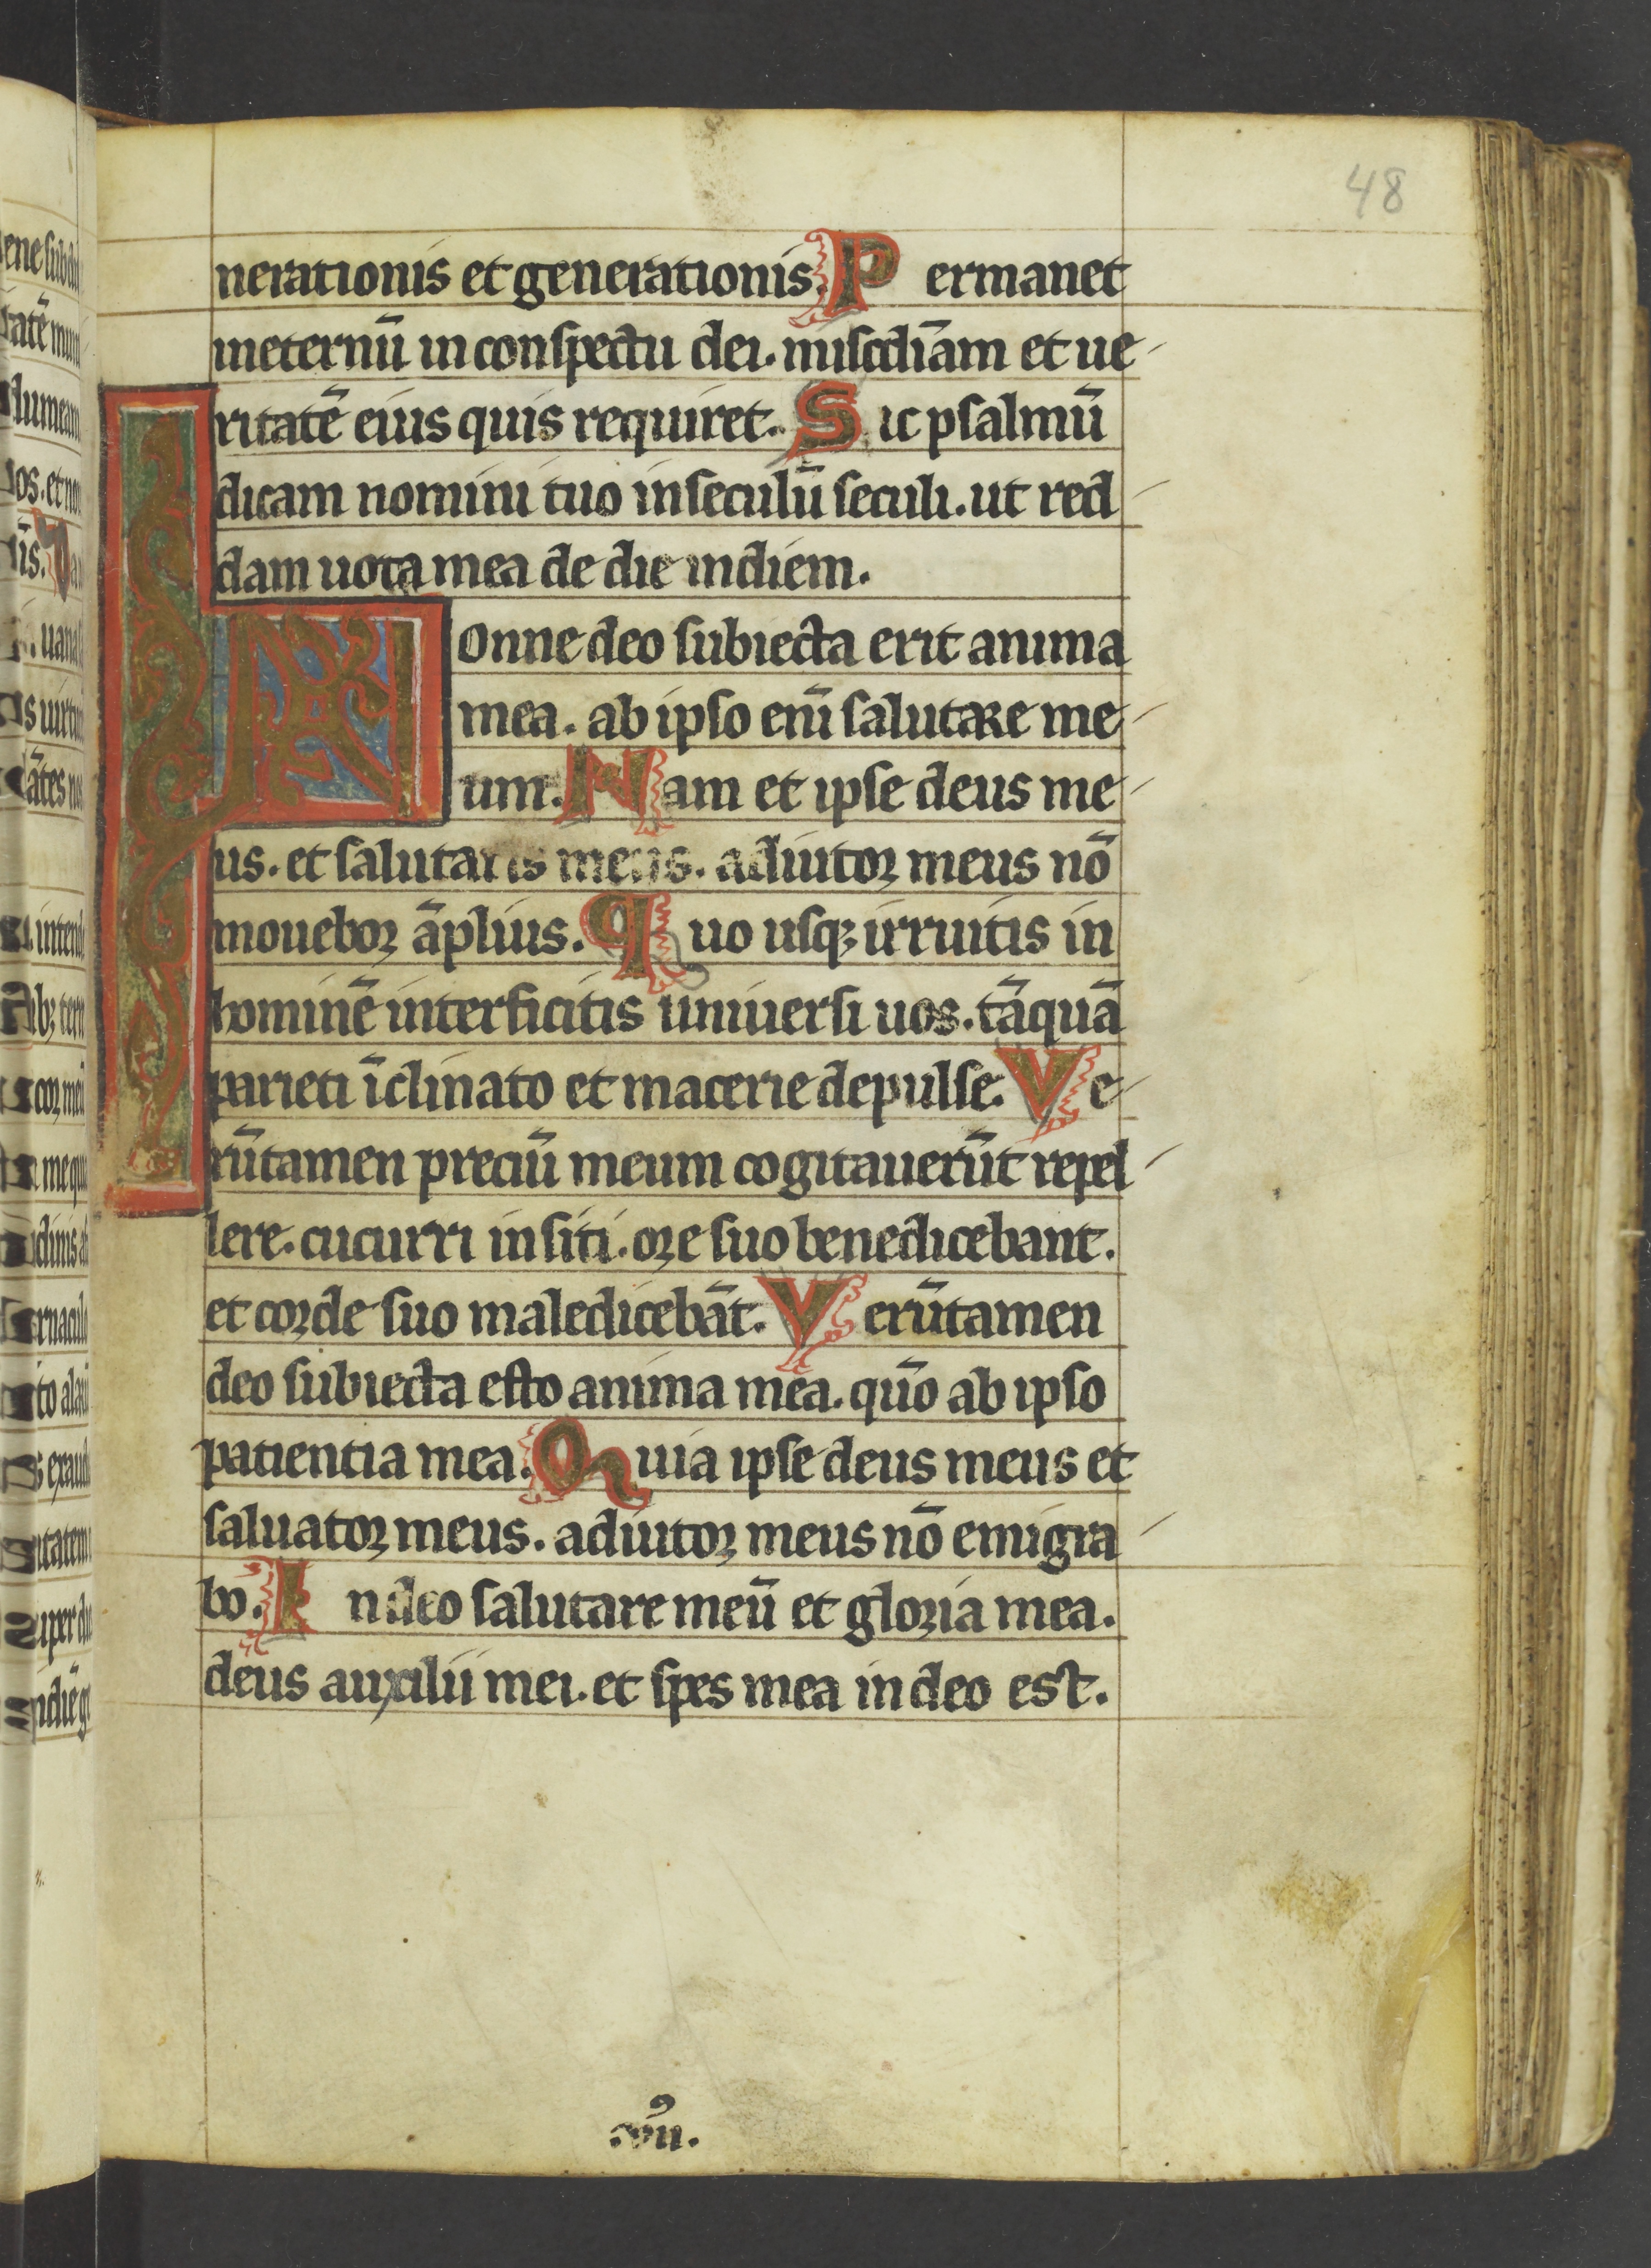 48
nerationis et generationis. Permanet
ineternū in conspectu dei. misc̄diam et ue
ritatē eius quis requiret. Sic psalmū
dicam nomini tuo inseculū seculi. ut red
dam uota mea de die indiem.
Nonne deo subiecta erit anima
mea. ab ipso enī salutare me
um. Nam et ipse deus me
us. et salutaris meus. adiutor meus nō
mouebor āplius. Quo usq; irruitis in
hominē interficitis uniuersi uos. tāquā
parieti īclinato et macerie depulse. Ve
rūtamen preciū meum cogitauerūt repel
lere. cucurri insiti. ore suo benedicebant.
et corde suo maledicebāt. Verūtamen
deo subiecta esto anima mea. quō ab ipso
patientia mea. Quia ipse deus meus et
saluator meus. adiutor meus nō emigra
bo. In deo salutare meū et gloria mea.
deus auxilii mei. et spes mea in deo est.